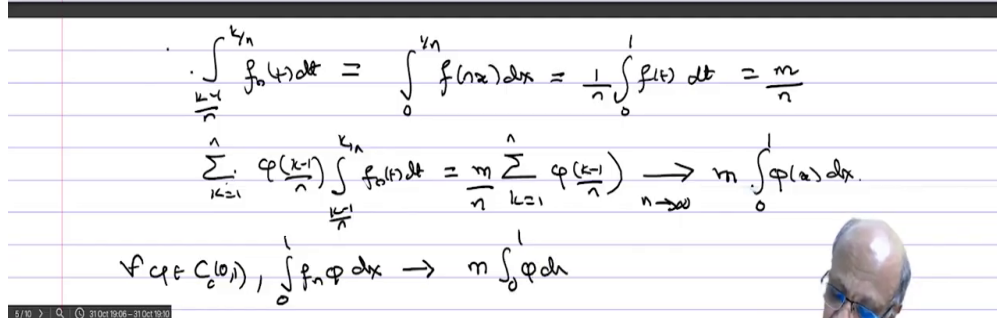 ∫_{(k-1)/n}^{k/n} f_n(t)dt = ∫_0^{1/n} f(nx)dx = 1/n ∫_0^1 f(t) dt = m/n
∑_{k=1}^n φ((k-1)/n) ∫_{(k-1)/n}^{k/n} f_n(t)dt = m/n ∑_{k=1}^n φ((k-1)/n) ⟶_{n→∞} m ∫_0^1 φ(x)dx.
∀ φ ∈ C_c(0,1), ∫_0^1 f_n φ dx → m ∫_0^1 φ dx
5 / 10 > 31 Oct 19:06 – 31 Oct 19:10